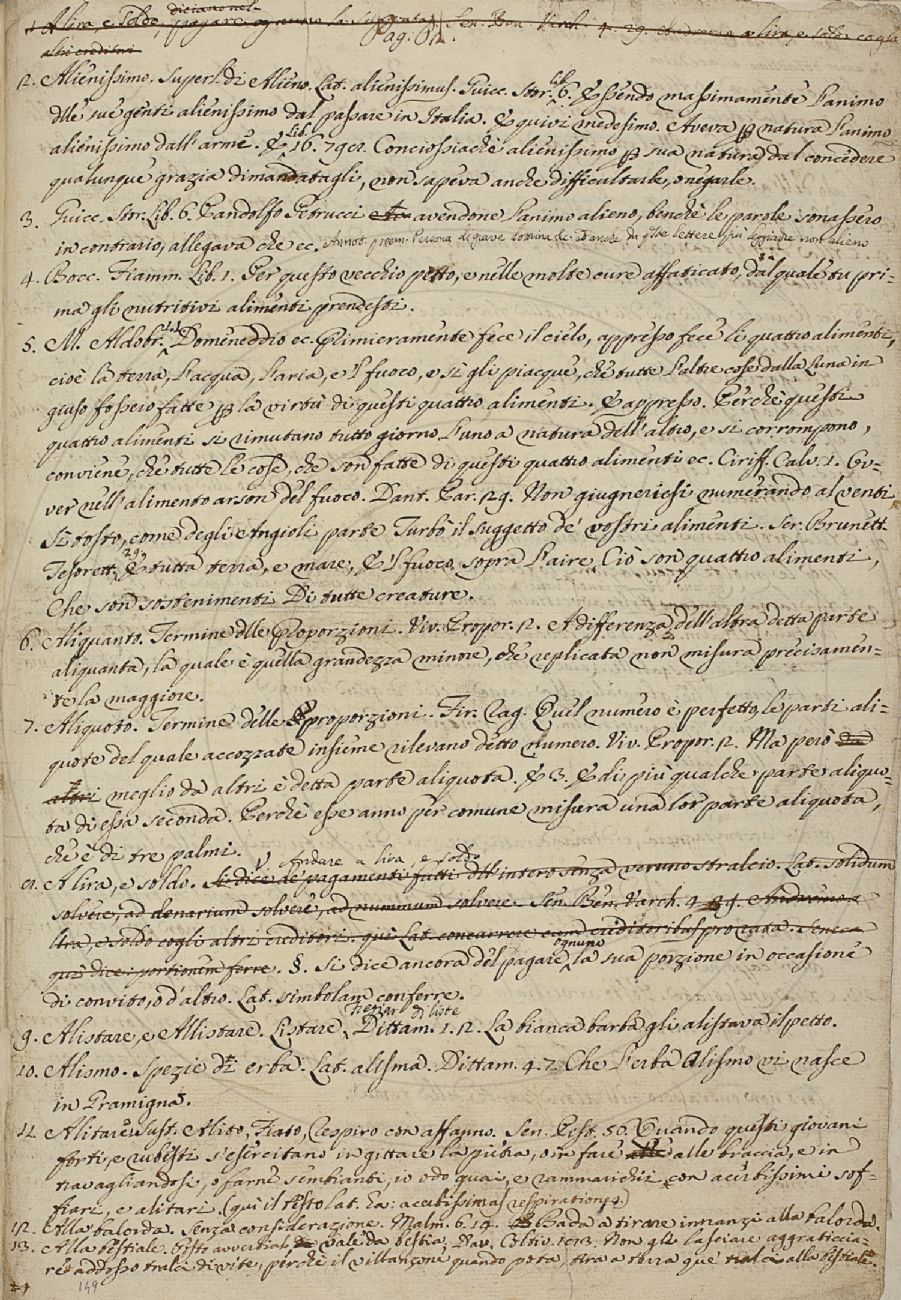 A lira, e soldo, diciamo nel pagare ognuno la sua rata. Sen. Ben. Varch. 4. 29. Andremo a lira, e soldo cogli
altri creditori
Pag. 61.
2. Alienissimo. Superl. di Alieno. Lat. alienissimus. Guicc. Stor. Lib. 6. Essendo massimamente l'animo
dlle sue genti alienissimo dal passare in Italia. E quivi medesimo. Aveva p natura l'animo
alienissimo dall'arme. E Lib. 16. 792. Conciossiachè alienissimo p sua natura dal concedere
qualunque grazia dimandatagli, non sapeva anche difficultarle, o negarle.
3. Guicc. Stor. Lib. 6. Pandolfo Petrucci avendone l'animo alieno, benchè le parole sonassero
in contrario, allegava che ec. Annot. proem. Persona di grave dottrina, e d'anche da qste lettere più leggiadre non alieno
4. Bocc. Fiamm. Lib. 1. Per questo vecchio petto, e nelle molte cure affaticato, dal quale tu pri-
ma gli nutritivi alimenti prendesti.
5. M. Aldobr. Domeneddio ec. Primieramente fece il cielo, appresso fece li quattro alimenti,
cioè la terra, l'acqua, l'aria, e 'l fuoco, e sì gli piacque, che tutte l'altre cose dalla Luna in
giuso fosseio fatte p la virtù di questi quattro alimenti. E appresso. Perchè questi
quattro alimenti si rimutano tutto giorno l'uno a natura dell'altro, e si corrompono,
conviene, che tutte le cose, che son fatte di questi quattro alimenti ec. Ciriff. Calv. 1. Gv-
ver nell'alimento arson del fuoco. Dant. Par. 29. Non giugneriesi numerando al venti
Sì tosto, come degli Angioli parte Turbò il suggetto de' vostri alimenti. Ser. Brunett.
Tesorett. E tutta terra, e mare, E 'l fuoco, sopra l'aire, Ciò son quattro alimenti,
Che son sostenimenti Di tutte creature.
6. Aliquanto. Termine dlle Proporzioni. Viv. Propor. 12. A differenza dell'altra detta parte
aliquanta, la quale è quella grandezza minore, che replicata non misura precisamen-
te la maggiore.
7. Aliquoto. Termine delle proporzioni. Fir. Rag. Quel numero è perfetto, le parti ali-
quote del quale accozzate insieme rilevano detto numero. Viv. Propor. 12. Ma però da
altri meglio da altri è detta parte aliquota. E 3. E di più qualche parte aliquo-
ta di essa seconda. Perchè esse anno per comune misura una lor parte aliquota,
che è di tre palmi.
V. Andare a lira, e soldo
A lira, e soldo. Si dice de' pagamenti fatti dll'intero senza veruno stralcio. Lat. solidum
solvere, ad denarium solvere, ad nummum solvere. Sen. Ben. Varch. 4. 29. Andremo a
lira, e soldo cogli altri creditori. qui Lat. concurrere cum creditoribus pro rata. Seneca
qui dice: portionem ferre. §. Si dice ancora del pagare ognuno la sua porzione in occasione
di convito, o d'altro. Lat. simbolam conferre.
9. Alistare, e Allistare. Listare, Fregiar di liste Dittam. 1. 12. La bianca barba gli alistava il petto.
10. Alismo. Spezie di erba. Lat. alisma. Dittam. 4. 7. Che l'erba Alismo vi nasce
in Pramigna.
11 Alitare sust. Alito, Fiato, Respiro con affanno. Sen. Pist. 56. Quando questi giovani
forti, e rubesti s'esercitano in gittare la pietra, o in fare alle braccia, e in
travagliandosi, o farne sembianti, io odo guai, e rammarichii con acerbissimi sof-
fiari, e alitari. (qui il testo lat. ha: acerbissimas respirationes)
12. Alla balorda. Senza considerazione. Malm. 6. 19. Bada a tirare innanzi alla balorda.
13. Alla bestiale. Posto avverbial. vale da bestia. Dav. Coltiv. 163. Non gli lasciare aggraticcia-
re addosso tralci di vite, perchè il villanzone quando pota, tira a terra que' tralci alla bestiale.
149